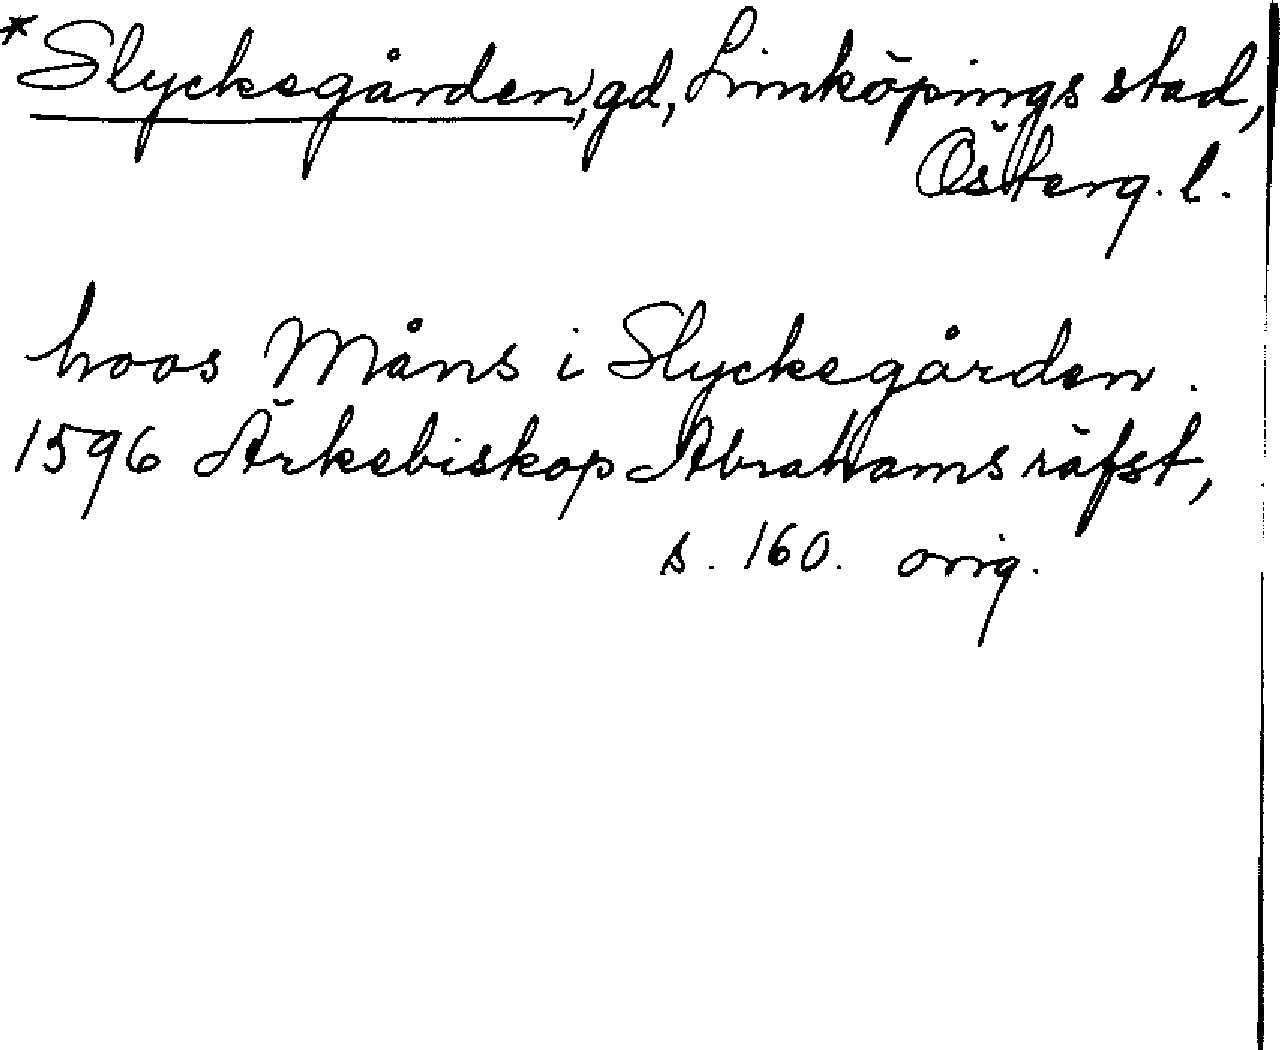 *Slyckegården, gd, Linköpings stad,
Österg. l.
hoos Måns i Slyckegården.
1596 Ärkebiskop Abrahams räfst,
s. 160. orig.